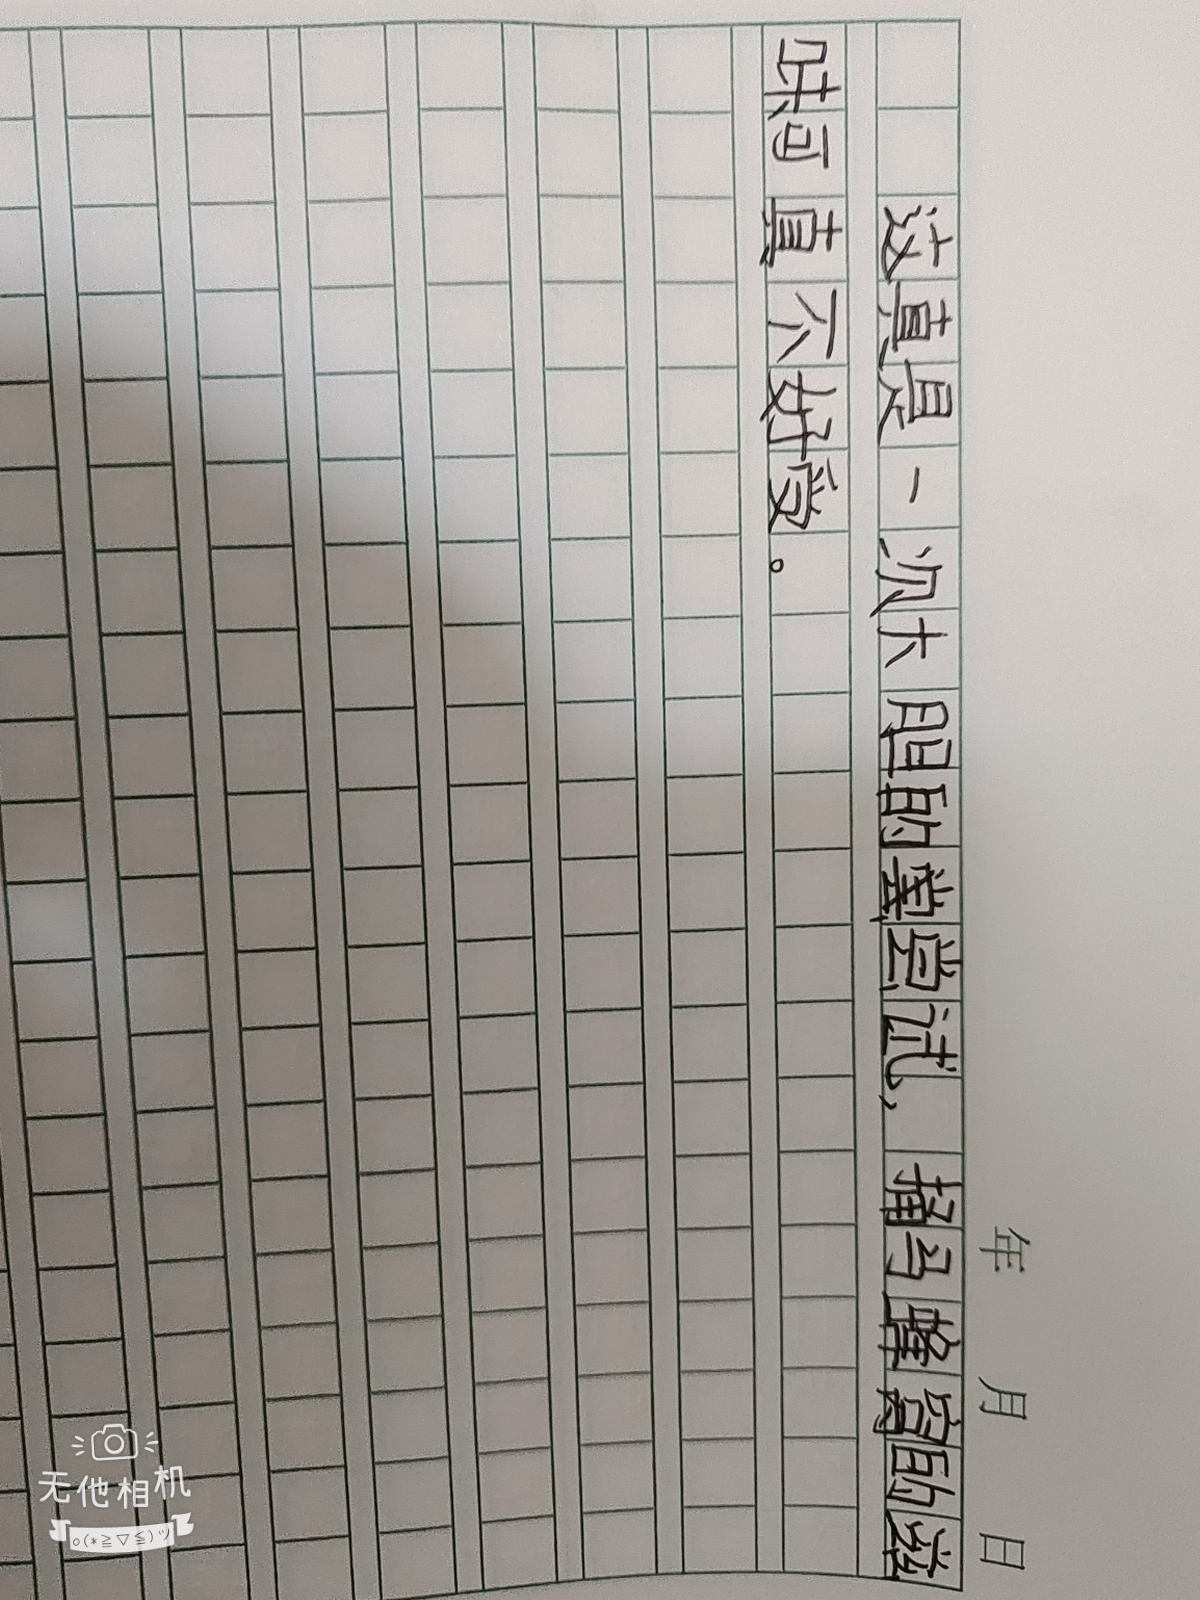 年 月 日
这真是一次大胆的堂尝试，捅马蜂窝的滋
味可真不好受。
无他相机
o(*≧▽≦)ツ